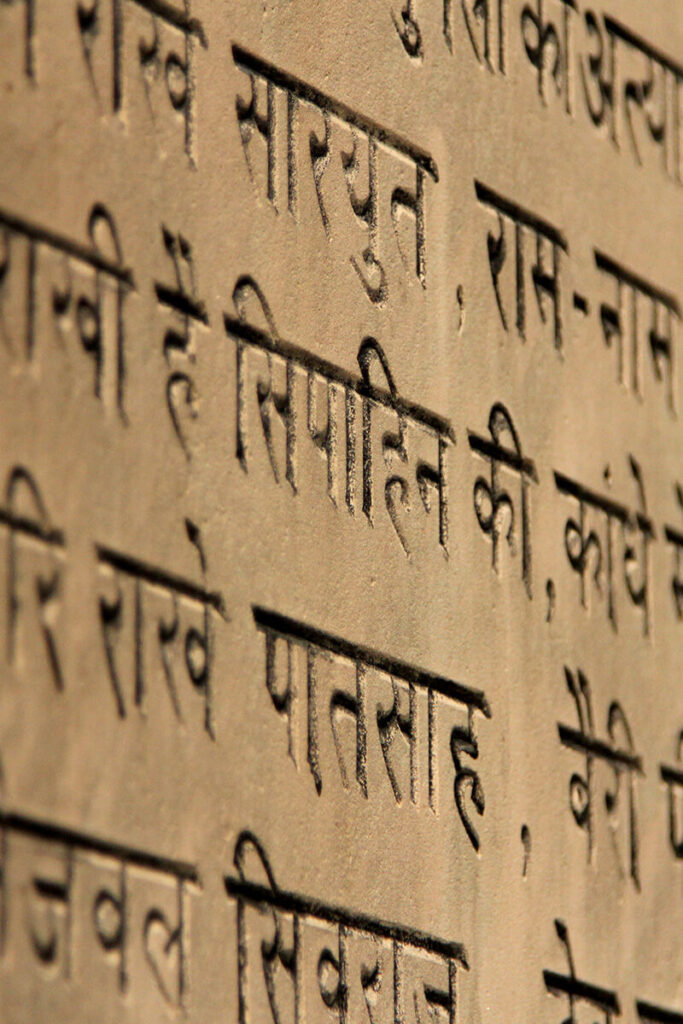 की अत्या
राखे सारयुत , राम-नाम
राखी है सिपाहिन की , कांधे
रि राखे पातसाह , बैरी
जवल सिवराज